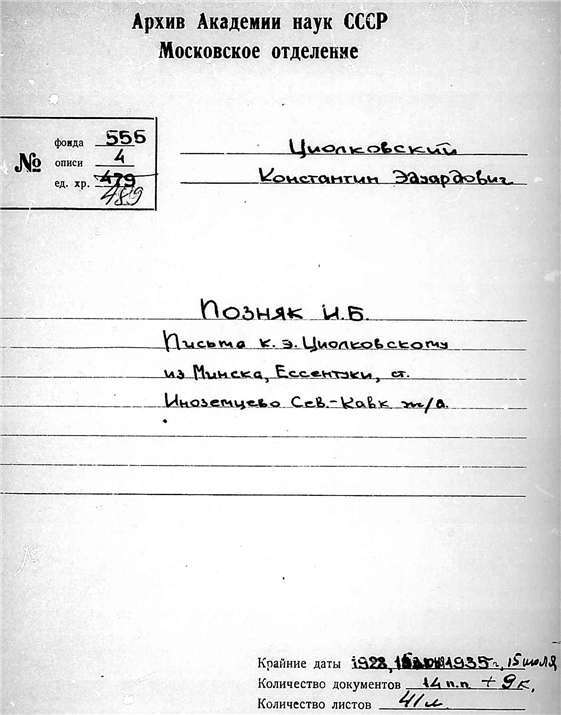 Архив Академии наук СССР
Московское отделение
№
фонда 555
описи 4
ед. хр. 479
489
Циолковский
Константин Эдуардович
Позняк И.Б.
Письма К.Э. Циолковскому
из Минска, Ессентуки, ст.
Иноземцево Сев.-Кавк ж/д.
Крайние даты 1928, 1935 г., 15 июля
Количество документов 14 п.п + 9 к.
Количество листов 41 л.